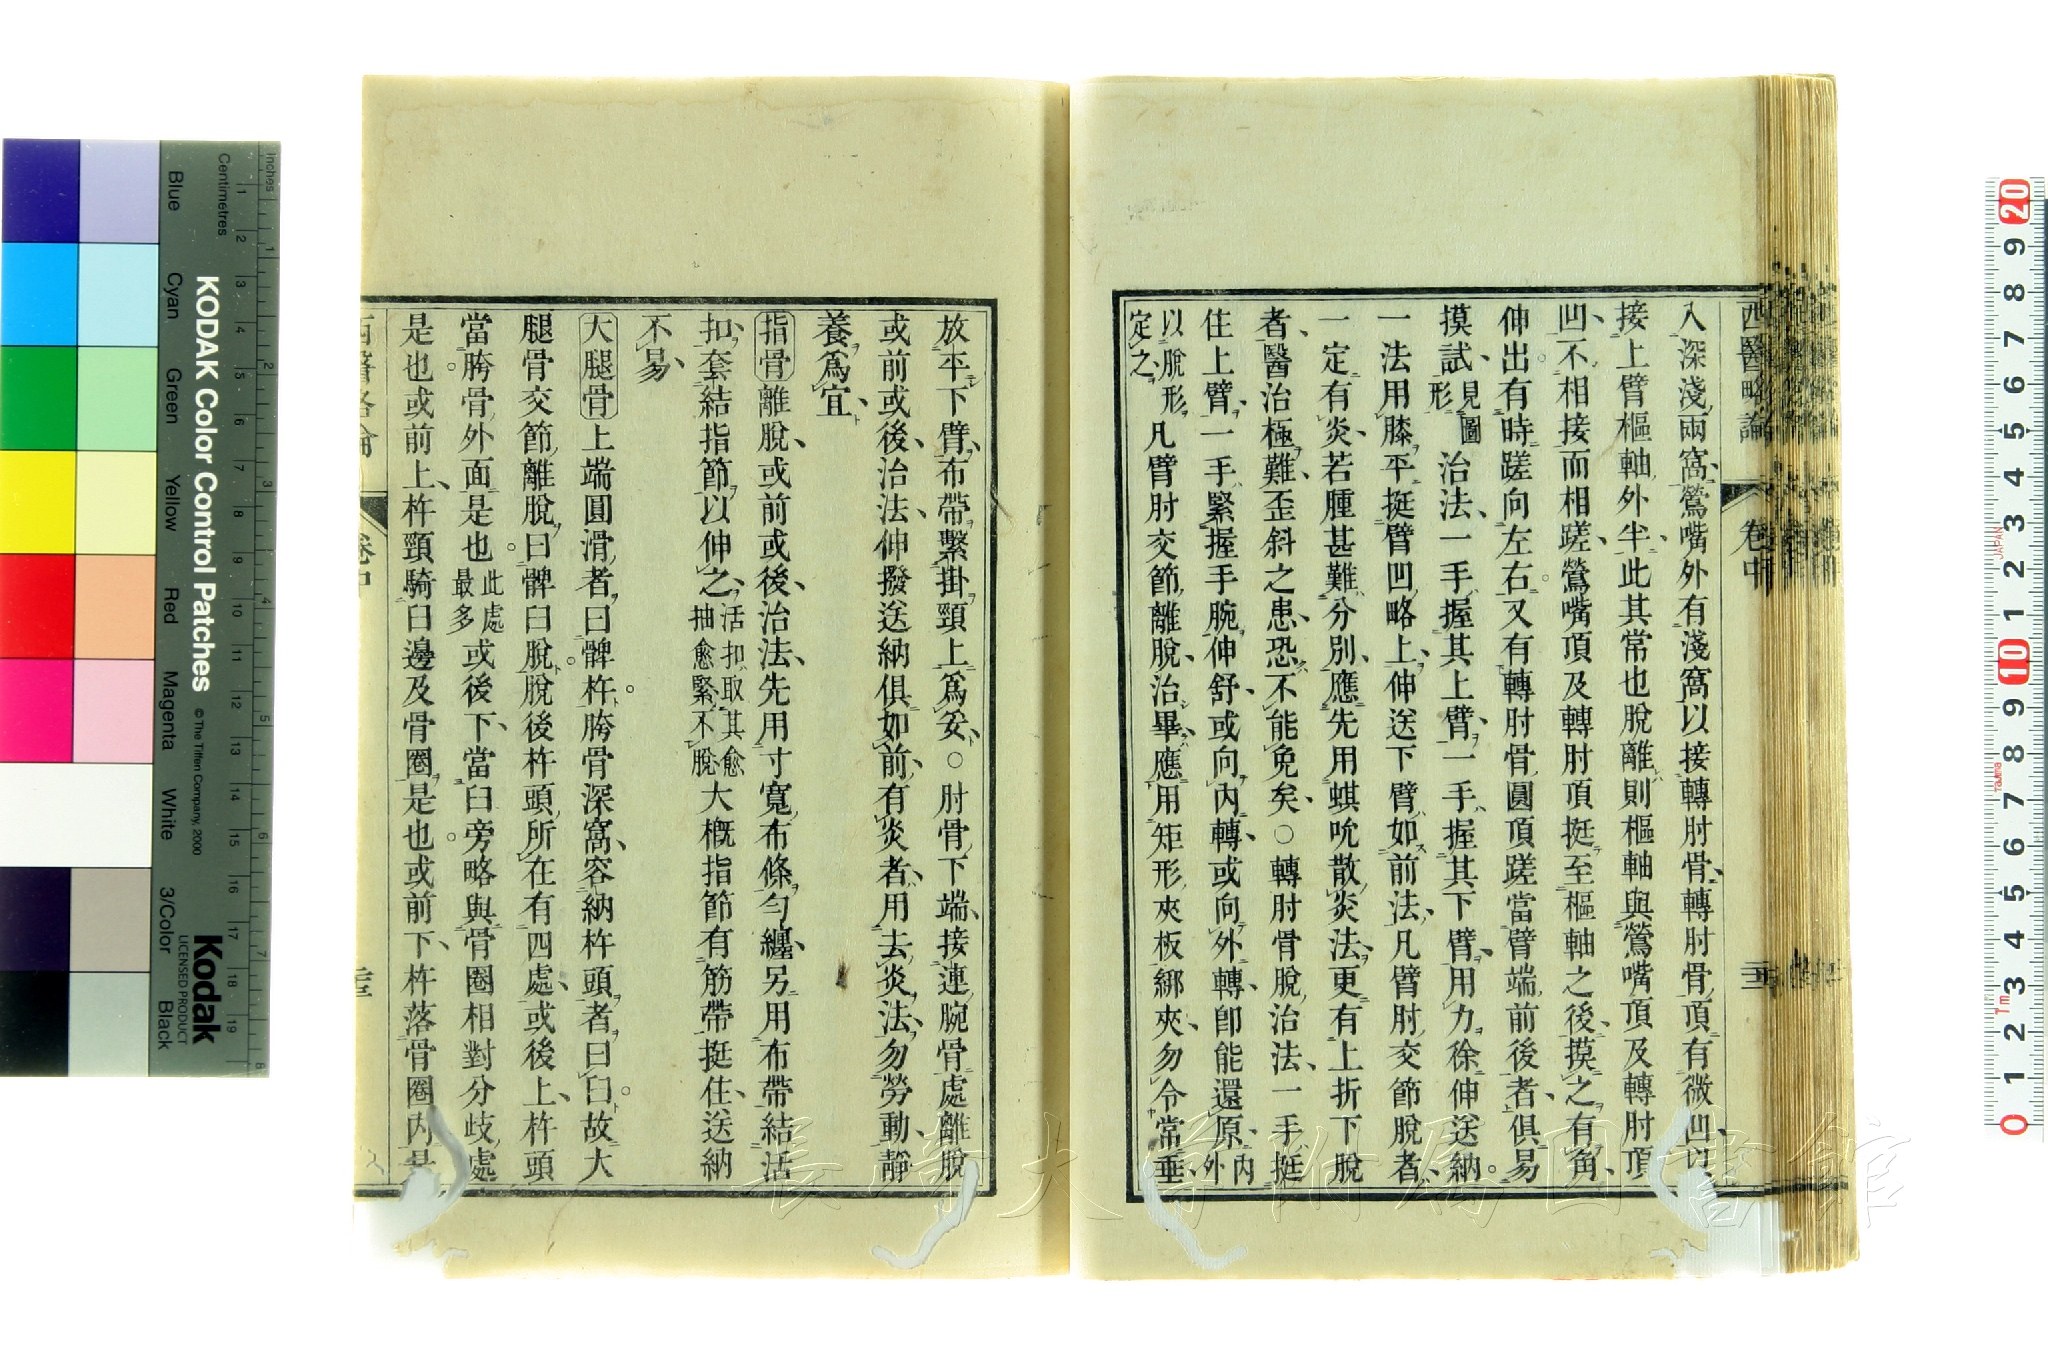 西醫略論 卷中
入深淺兩窩鶯嘴外有淺窩以接轉肘骨轉肘骨頂有微凹以
接上臂樞軸外半此其常也脫離則樞軸與鶯嘴頂及轉肘頂
凹不相接而相蹉鶯嘴頂及轉肘頂挺至樞軸之後摸之有角
伸出有時蹉向左右又有轉肘骨圓頂蹉當臂端前後者俱易
摸試見圖形治法一手握其上臂一手握其下臂用力徐伸送納
一法用膝平挺臂凹略上伸送下臂如前法凡臂肘交節脫者
一定有炎若腫甚難分別應先用蜞吮散炎法更有上折下脫
者醫治極難歪斜之患恐不能免矣○轉肘骨脫治法一手挺
住上臂一手緊握手腕伸舒或向內轉或向外轉卽能還原內外
以脫形定之凡臂肘交節離脫治畢應用矩形夾板綁夾勿令常垂
放平下臂布帶繫掛頸上爲妥○肘骨下端接連腕骨處離脫
或前或後治法伸撥送納俱如前有炎者用去炎法勿勞動靜
養爲宜
指骨離脫或前或後治法先用寸寬布條勻纏另用布帶結活
扣套結指節以伸之活扣取其愈抽愈緊不脫大概指節有筋帶挺住送納
不易
大腿骨上端圓滑者曰髀杵胯骨深窩容納杵頭者曰臼故大
腿骨交節離脫曰髀臼脫脫後杵頭所在有四處或後上杵頭
當胯骨外面是也此處最多或後下當臼旁略與骨圈相對分歧處
是也或前上杵頸騎臼邊及骨圈是也或前下杵落骨圈內是
西醫略論 卷中
KODAK Color Control Patches
© The Tiffen Company, 2000
Kodak
LICENSED PRODUCT
Inches
Centimetres
Blue
Cyan
Green
Yellow
Red
Magenta
White
3/Color
Black
1 2 3 4 5 6 7 8 9 10 11 12 13 14 15 16 17 18 19
1 2 3 4 5 6 7 8
20 9 8 7 6 5 4 3 2 1 10 9 8 7 6 5 4 3 2 1 0
JAPAN
長崎大学附属図書館